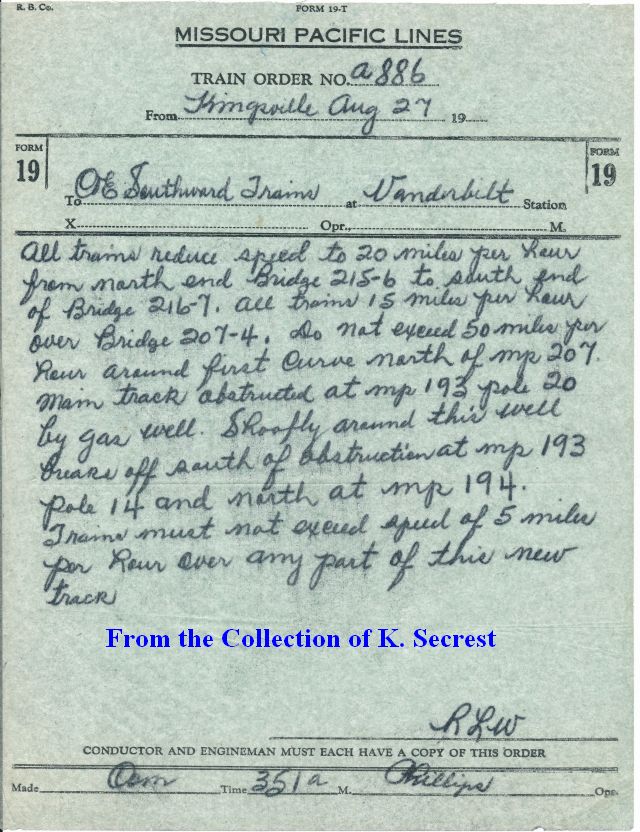 R. B. Co.
FORM 19-T
MISSOURI PACIFIC LINES
TRAIN ORDER NO. a 886
From Kingsville Aug 27 19
FORM 19
FORM 19
To C&E Southward Trains at Vanderbilt Station
X Opr., M.
All trains reduce speed to 20 miles per hour
from north end Bridge 215-6 to south end
of Bridge 216-7. All trains 15 miles per hour
over Bridge 207-4. Do not exceed 50 miles per
hour around first Curve north of mp 207.
Main track obstructed at mp 193 pole 20
by gas well. Shoofly around this well
breaks off south of obstruction at mp 193
pole 14 and north at mp 194.
Trains must not exceed speed of 5 miles
per hour over any part of this new
track
From the Collection of K. Secrest
RLW
CONDUCTOR AND ENGINEMAN MUST EACH HAVE A COPY OF THIS ORDER
Made Com Time 351a M. Phillips Opr.